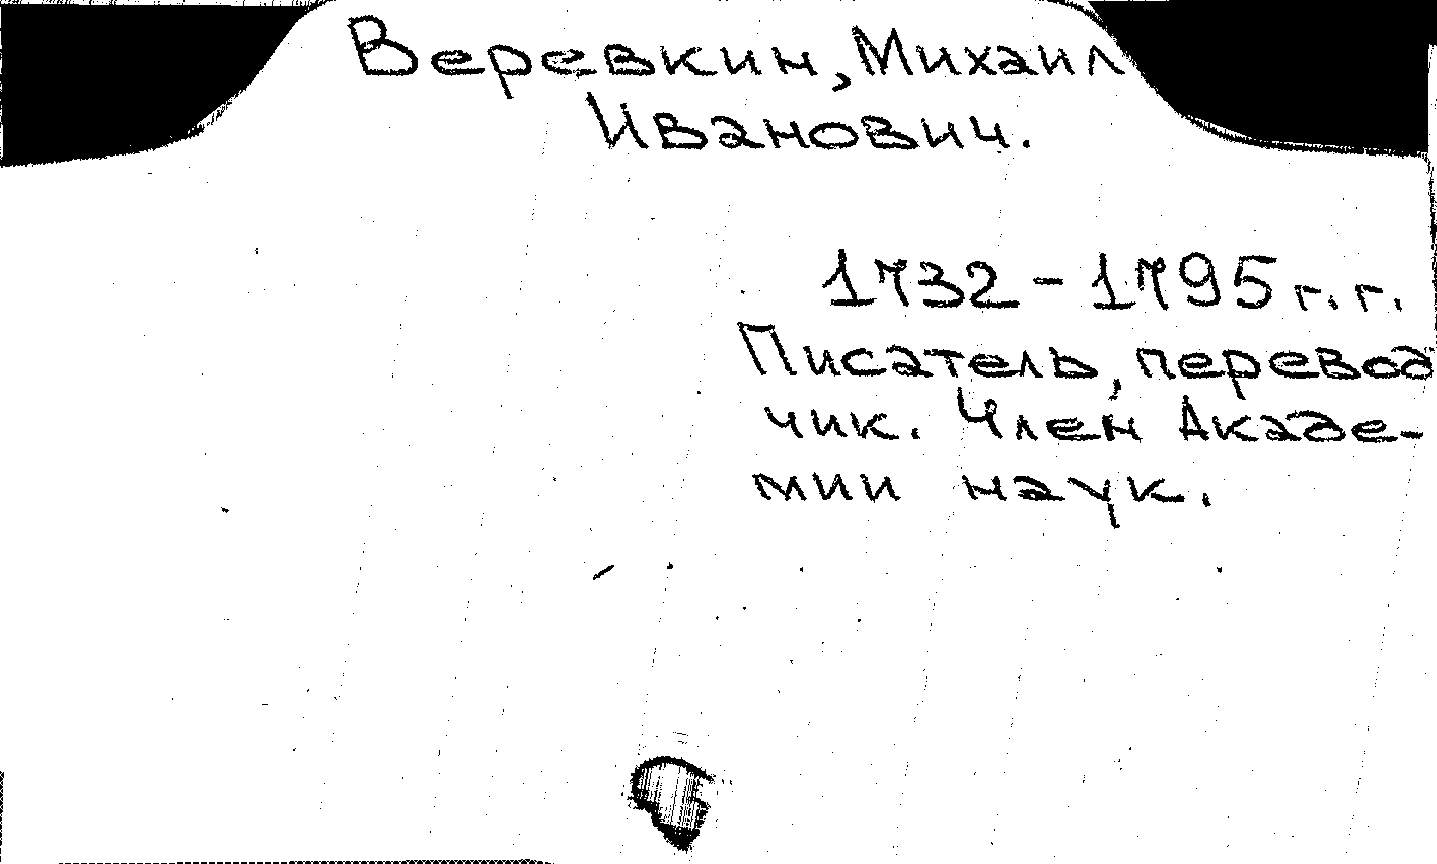 Веревкин, Михаил
Иванович.
1732 - 1795 г. г.
Писатель, перевод
чик. Член Акаде-
мии наук.